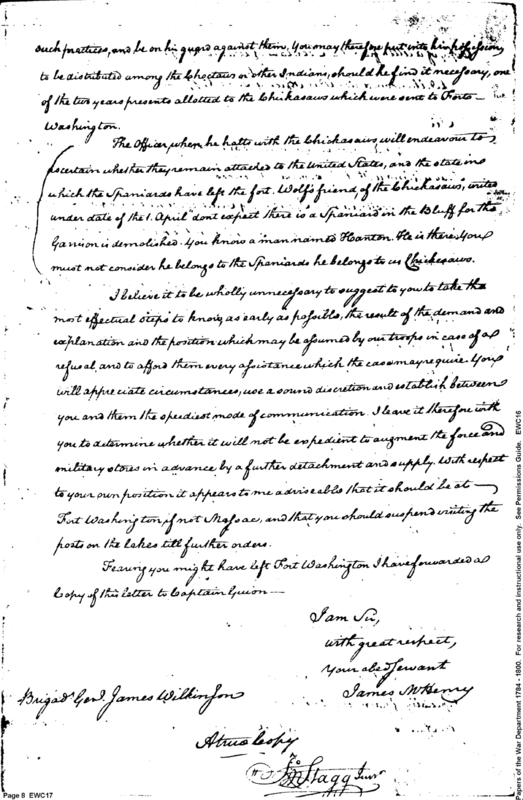 such practices, and be on his guard against them. You may therefore put into his possession
to be distributed among the Choctaws or other Indians, should he find it necessary, one
of the two years presents allotted to the Chikasaws which were sent to Forto
Washington.
The Officer, when he halts with the Chickasaws, will endeavour to
ascertain whether they remain attached to the United States, and the state in
which the Spaniards have left the fort. Wolf's friend, of the Chikasaws, writes
under date of the 1. April "dont expect there is a Spaniard in the Bluff for the
Garrison is demolished. You know a man named Hanton. He is there. You
must not consider he belongs to the Spaniards he belongs to us Chickesaws.
I believe it to be wholly unnecessary to suggest to you to take the
most effectual steps to know, as early as possible, the result of the demand and
explanation and the position which may be assumed by our troops in case of a
refusal, and to afford them every assistance which the case may require. You
will appreciate circumstances, use a sound discretion and establish between
you and them the speediest mode of communication. I leave it therefore with
you to determine whether it will not be expedient to augment the force and
military stores in advance by a further detachment and supply. With respect
to your own position it appears to me adviseable that it should be at
Fort Washington, if not Massac, and that you should suspend visiting the
posts on the lakes till further orders.
Fearing you might have left Fort Washington I have forwarded a
Copy of this letter to Captain Guion
I am Sir,
with great respect,
Your obed Servant
James McHenry
Brigadr. Genl. James Wilkinson
A true Copy
Jno Stagg Junr
Page 8 EWC17
Papers of the War Department 1784 - 1800. For research and instructional use only. See Permissions Guide. EWC16